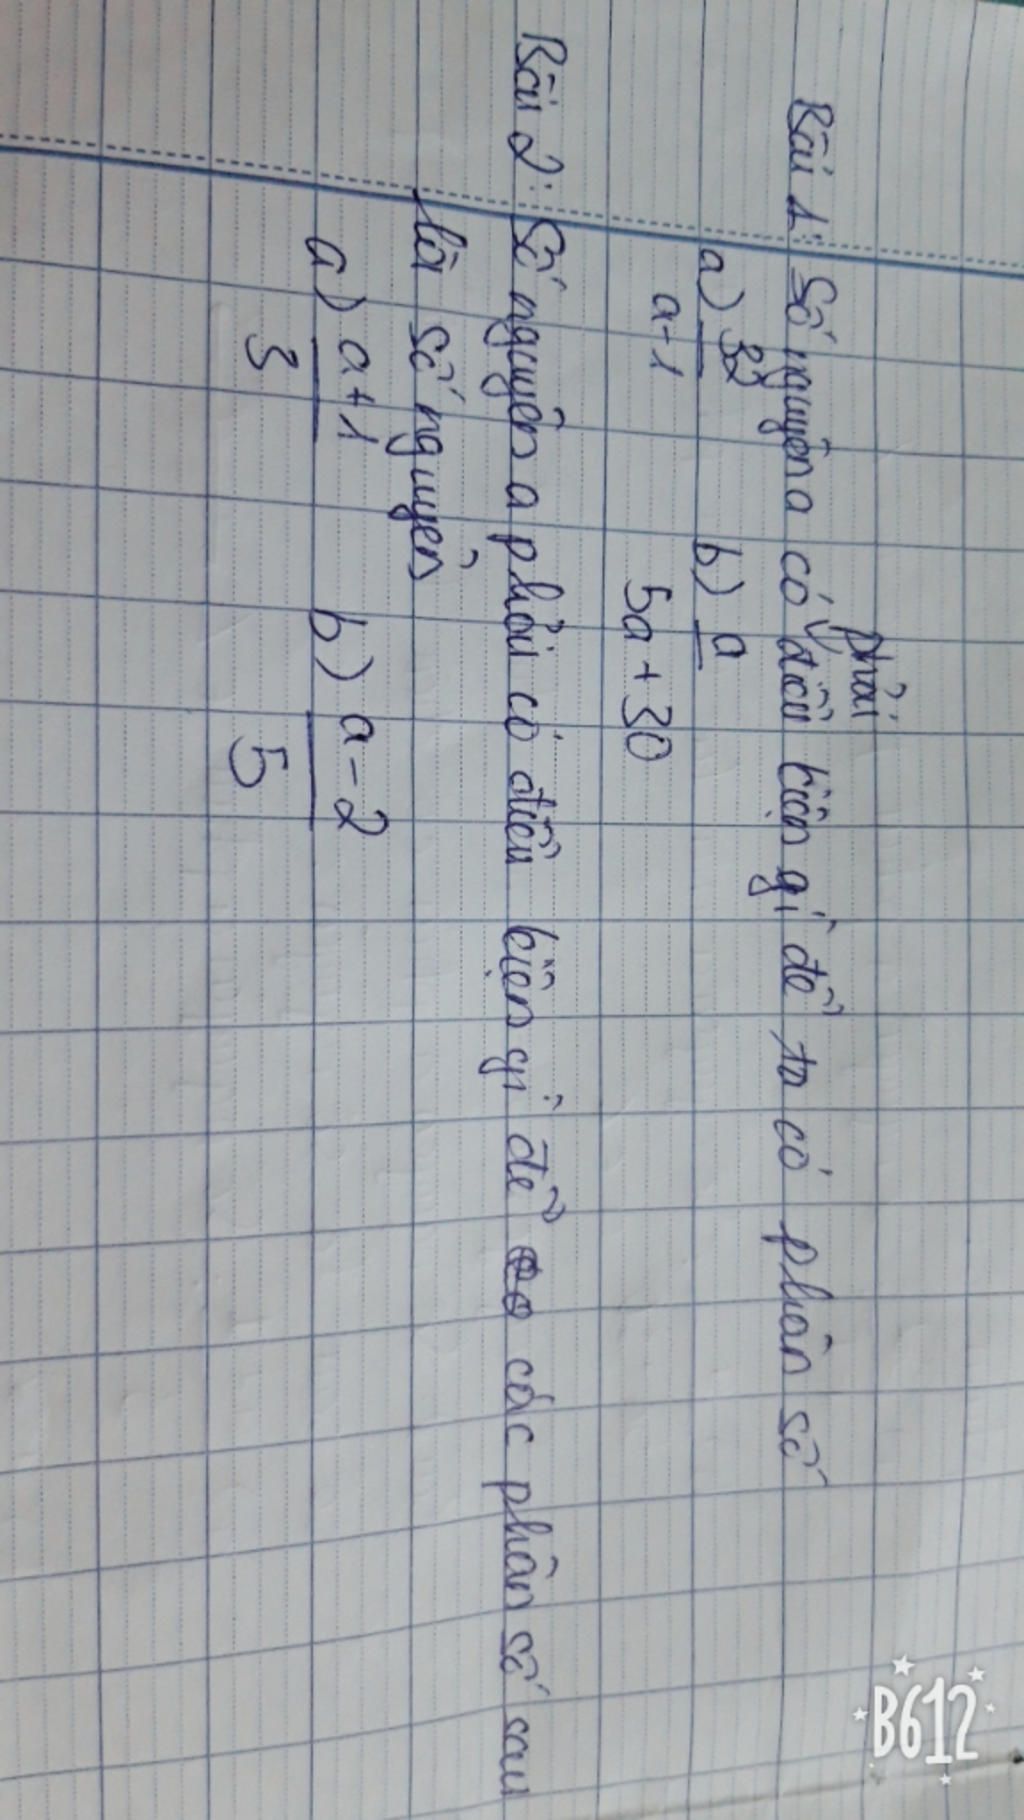 phải
Bài 1: Số nguyên a có điều kiện gì để ta có phân số
a) 32 b) a
a-1 5a+30
Bài 2: Số nguyên a phải có điều kiện gì để các phân số sau
là số nguyên
a) a+1 b) a-2
3 5
B612